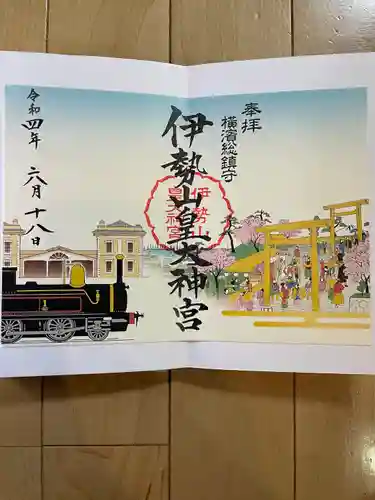 奉拝
横濱総鎮守
伊勢山皇大神宮
伊勢山
皇大神宮
令和四年
六月十八日
1